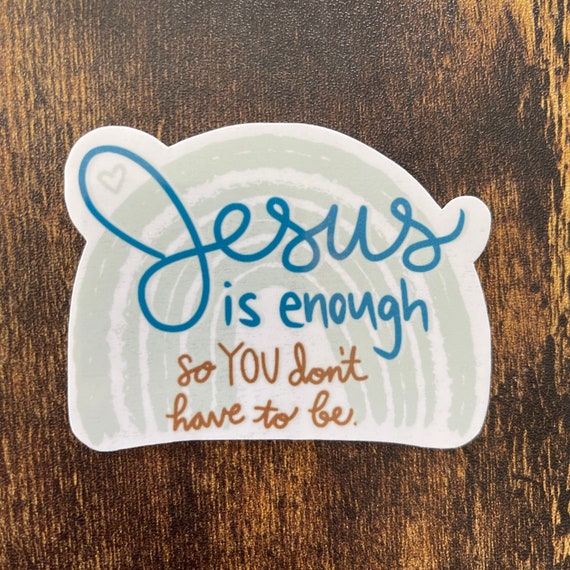 Jesus
is enough
so YOU don't
have to be.